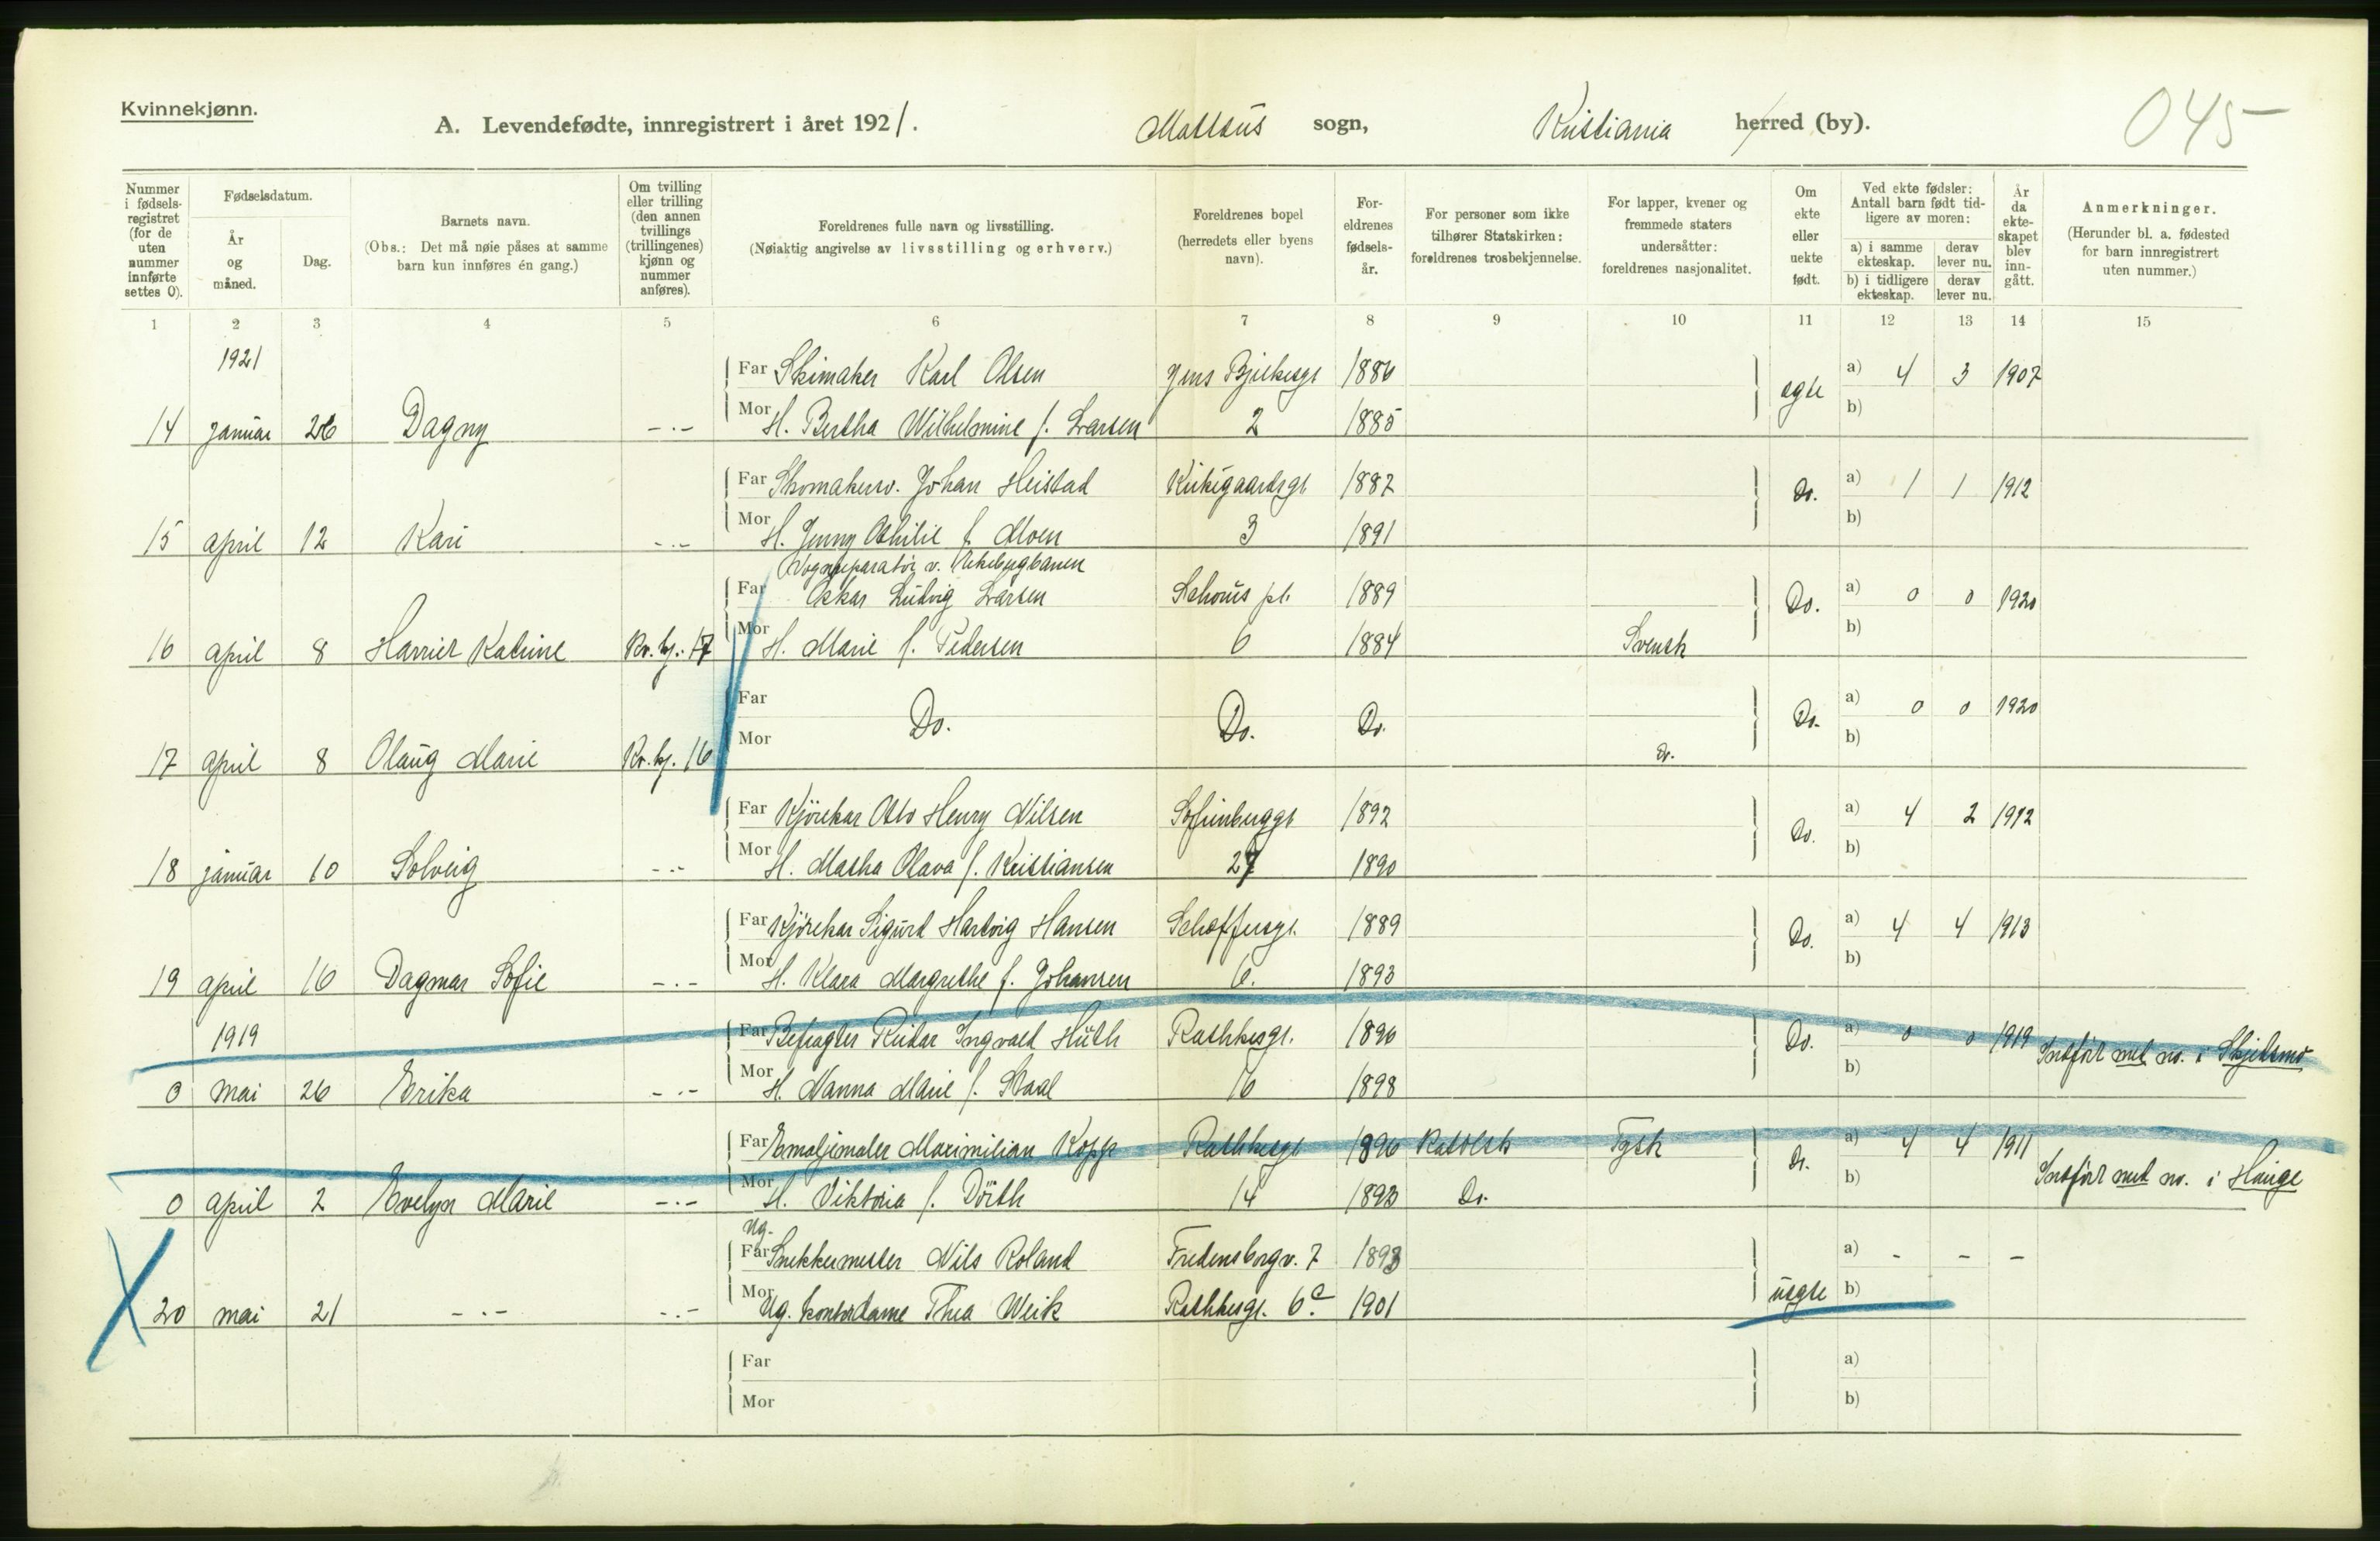 Kvinnekjønn.
A. Levendefødte, innregistrert i året 1921. Mattæus sogn, Kristiania herred (by). 045
Nummer i fødselsregistret (for de uten nummer innførte settes 0).
Fødselsdatum.
År og måned.
Dag.
Barnets navn.
(Obs.: Det må nøie påses at samme barn kun innføres én gang.)
Om tvilling eller trilling (den annen tvillings (trillingenes) kjønn og nummer anføres).
Foreldrenes fulle navn og livsstilling.
(Nøiaktig angivelse av livsstilling og erhverv.)
Foreldrenes bopel (herredets eller byens navn).
Foreldrenes fødselsår.
For personer som ikke tilhører Statskirken: foreldrenes trosbekjennelse.
For lapper, kvener og fremmede staters undersåtter: foreldrenes nasjonalitet.
Om ekte eller uekte født.
Ved ekte fødsler: Antall barn født tidligere av moren:
a) i samme ekteskap. derav lever nu.
b) i tidligere ekteskap. derav lever nu.
År da ekteskapet blev inngått.
Anmerkninger.
(Herunder bl. a. fødested for barn innregistrert uten nummer.)
1 2 3 4 5 6 7 8 9 10 11 12 13 14 15
1921
Far Skimaker Karl Olsen Jens Bjelkesgt 1886 a) 4 3 1907
14 januar 26 Dagny -.- Mor H. Bertha Wilhelmine f. Larsen 2 1885 egte b)
Far Skomakersv. Johan Heistad Kirkegaardsgt 1887 Do. a) 1 1 1912
15 april 12 Kari -.- Mor H. Jenny Othilie f. Moen 3 1891 b)
Vognreparatør v. Ekebergbanen
Far Oskar Ludvig Larsen Schous pl. 1889 Do. a) 0 0 1920
16 april 8 Harriet Katrine Kv. kj. 17 Mor H. Marie f. Pedersen 6 1884 Svensk b)
Far Do. Do. Do. Do. a) 0 0 1920
17 april 8 Olaug Marie Kv. kj. 16 Mor D. b)
Far Kjørekar Otto Henry Nilsen Sofienberggt 1892 Do. a) 4 2 1912
18 januar 10 Solveig -.- Mor H. Martha Olava f. Kristiansen 27 1890 b)
Far Kjørekar Sigurd Hartvig Hansen Schæffersgt. 1889 Do. a) 4 4 1913
19 april 16 Dagmar Sofie -.- Mor H. Klara Margrethe f. Johansen 6. 1893 b)
1919 Far Befragter Reidar Ingvald Huth Rathkesgt. 1896 Do. a) 0 0 1919 Indført med no. i Skjelsmo
0 mai 26 Erika -.- Mor H. Nanna Marie f. Staal 16 1898 b)
Far Emaljemaler Maximilian Kopp Rathkesgt 1896 Katolsk Tysk D. a) 4 4 1911
0 april 2 Evelyn Marie -.- Mor H. Viktoria f. Dörth 14 1893 Do. b) Indført med no. i Hauge
Ug.
Far Snekkermester Nils Roland Fredensborgv. 7 1893 a) - - -
20 mai 21 -.- -.- Mor Ug. kontordame Thea Weik Rathkesgt. 6c. 1901 uegte b)
Far a)
Mor b)